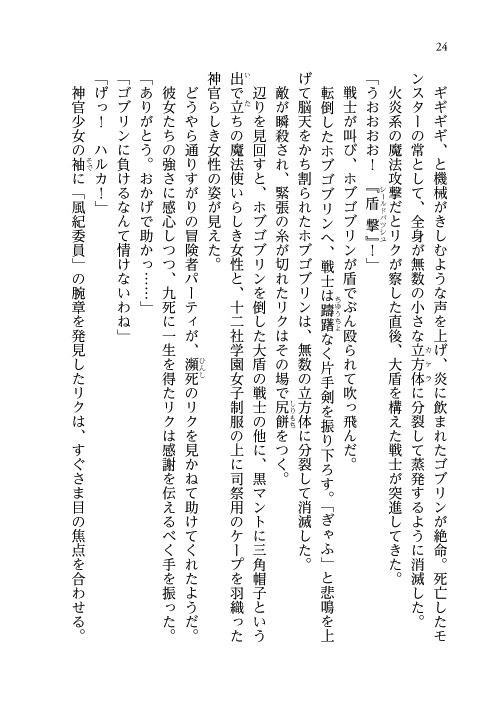 24
　ギギギギ、と機械がきしむような声を上げ、炎に飲まれたゴブリンが絶命。死亡したモ
ンスターの常として、全身が無数の小さな立方体に分裂して蒸発するように消滅した。
　火炎系の魔法攻撃だとリクが察した直後、大盾を構えた戦士が突進してきた。
「うおおおお！　『盾撃』！」
　戦士が叫び、ホブゴブリンが盾でぶん殴られて吹っ飛んだ。
　転倒したホブゴブリンへ、戦士は躊躇なく片手剣を振り下ろす。「ぎゃふ」と悲鳴を上
げて脳天をかち割られたホブゴブリンは、無数の立方体に分裂して消滅した。
　敵が瞬殺され、緊張の糸が切れたリクはその場で尻餅をつく。
　辺りを見回すと、ホブゴブリンを倒した大盾の戦士の他に、黒マントに三角帽子という
出で立ちの魔法使いらしき女性と、十二社学園女子制服の上に司祭用のケープを羽織った
神官らしき女性の姿が見えた。
　どうやら通りすがりの冒険者パーティが、瀕死のリクを見かねて助けてくれたようだ。
　彼女たちの強さに感心しつつ、九死に一生を得たリクは感謝を伝えるべく手を振った。
「ありがとう。おかげで助かっ……」
「ゴブリンに負けるなんて情けないわね」
「げっ！　ハルカ！」
　神官少女の袖に「風紀委員」の腕章を発見したリクは、すぐさま目の焦点を合わせる。